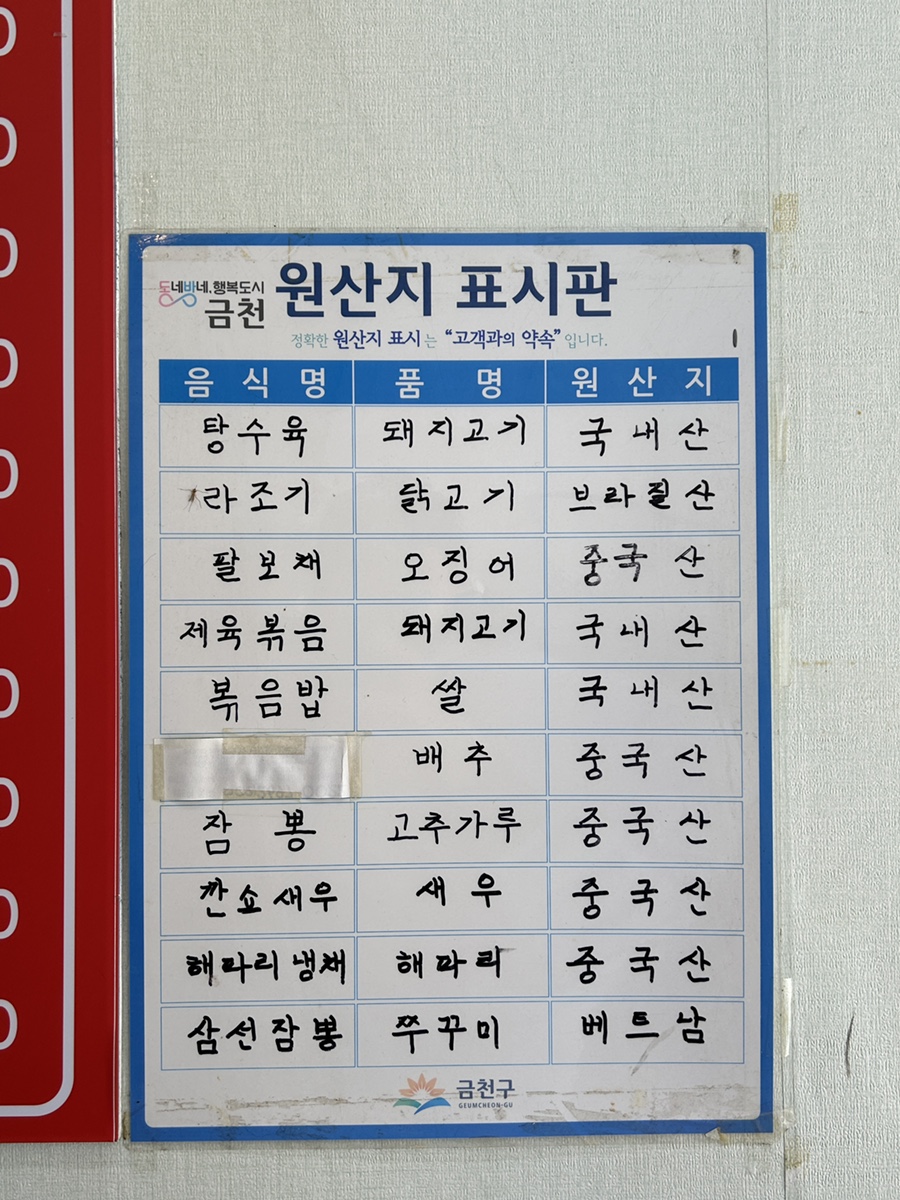 0
0
0
0
0
0
0
0
0
0
동네방네.행복도시
금천
원산지 표시판
정확한 원산지 표시는 "고객과의 약속"입니다.
음식명 품명 원산지
탕수육 돼지고기 국내산
라조기 닭고기 브라질산
팔보채 오징어 중국산
제육볶음 돼지고기 국내산
볶음밥 쌀 국내산
배추 중국산
잠뽕 고추가루 중국산
깐쇼새우 새우 중국산
해파리냉채 해파리 중국산
삼선잠뽕 쭈꾸미 베트남
금천구
GEUMCHEON-GU